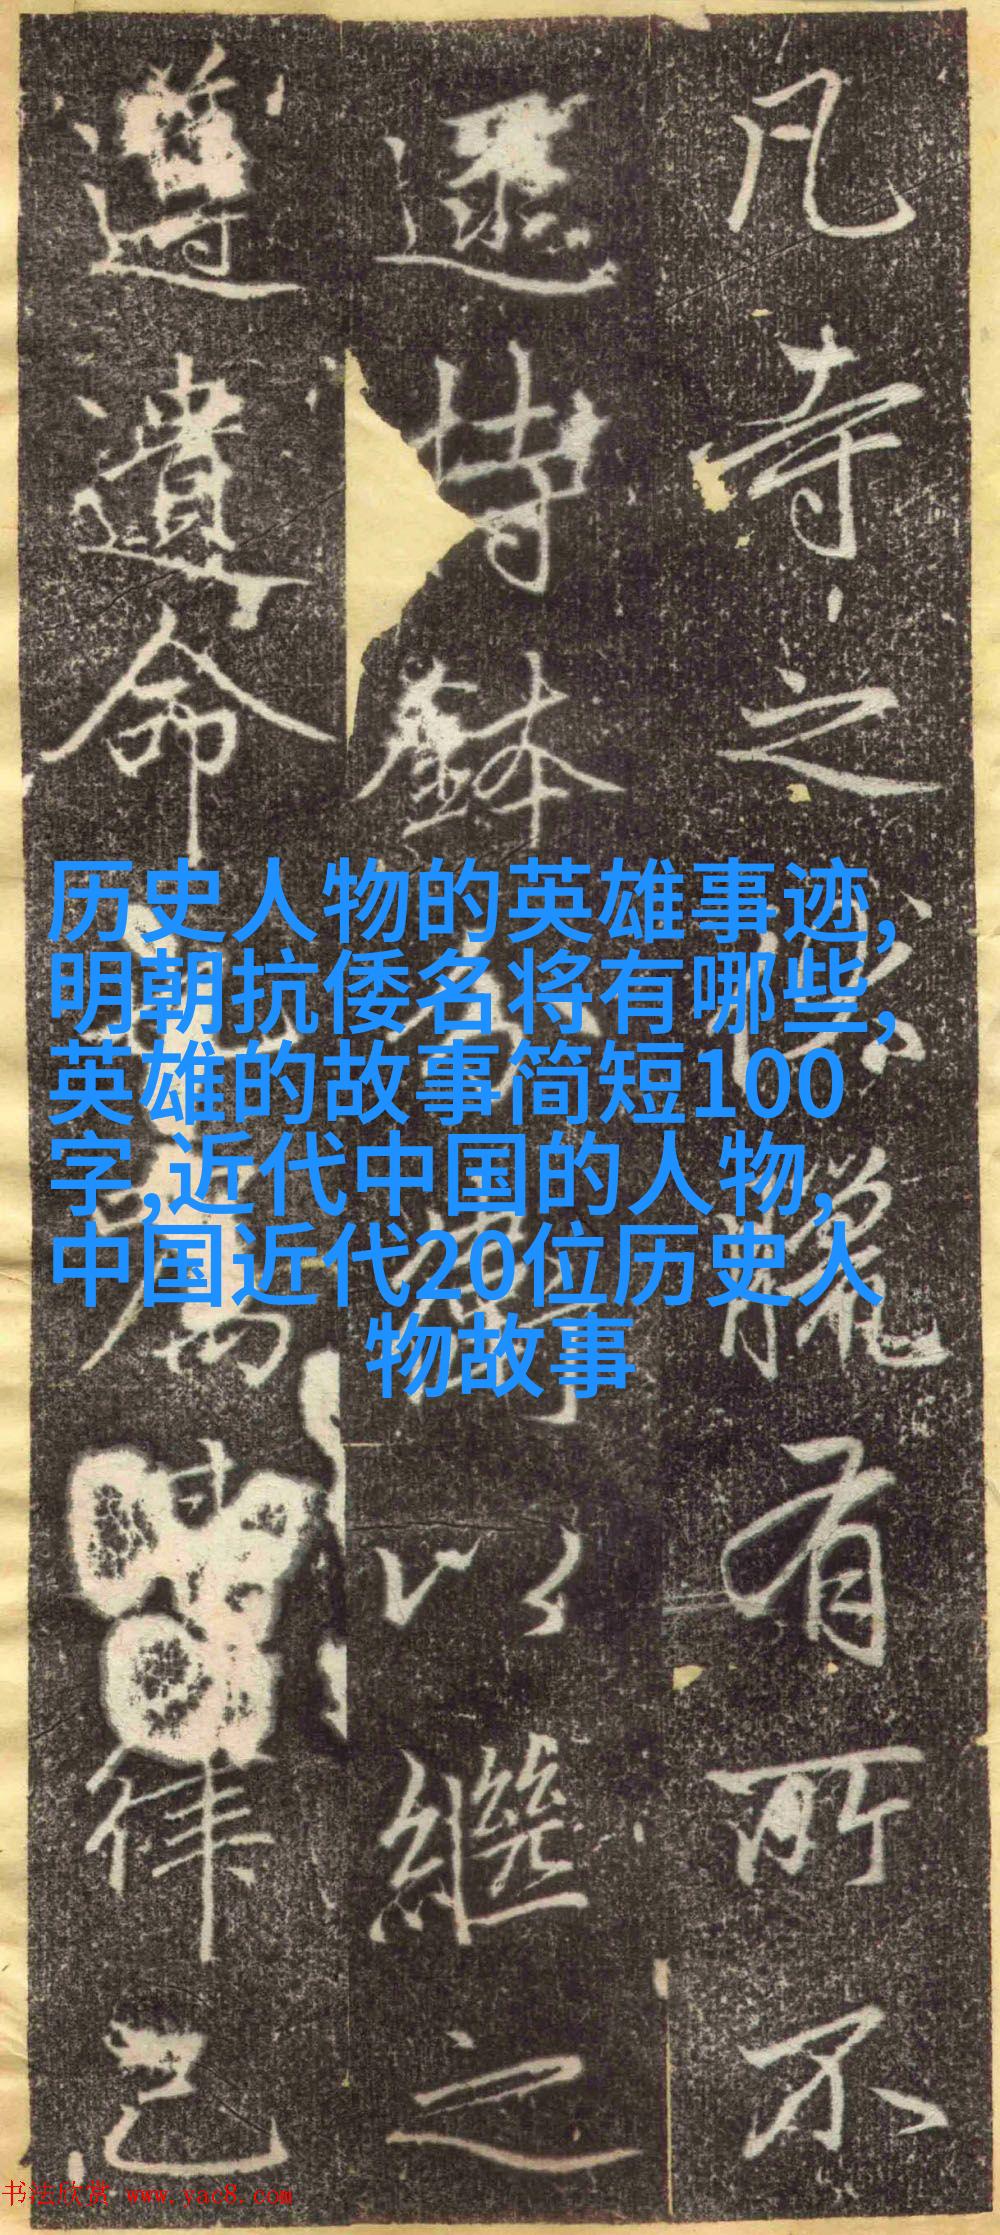 凡寺之惔臘有所不
遝持鉢
以繼之
遵遺命
律己
历史人物的英雄事迹,
明朝抗倭名将有哪些,
英雄的故事简短100
字,近代中国的人物,
中国近代20位历史人
物故事
书法欣赏 www.yac8.com